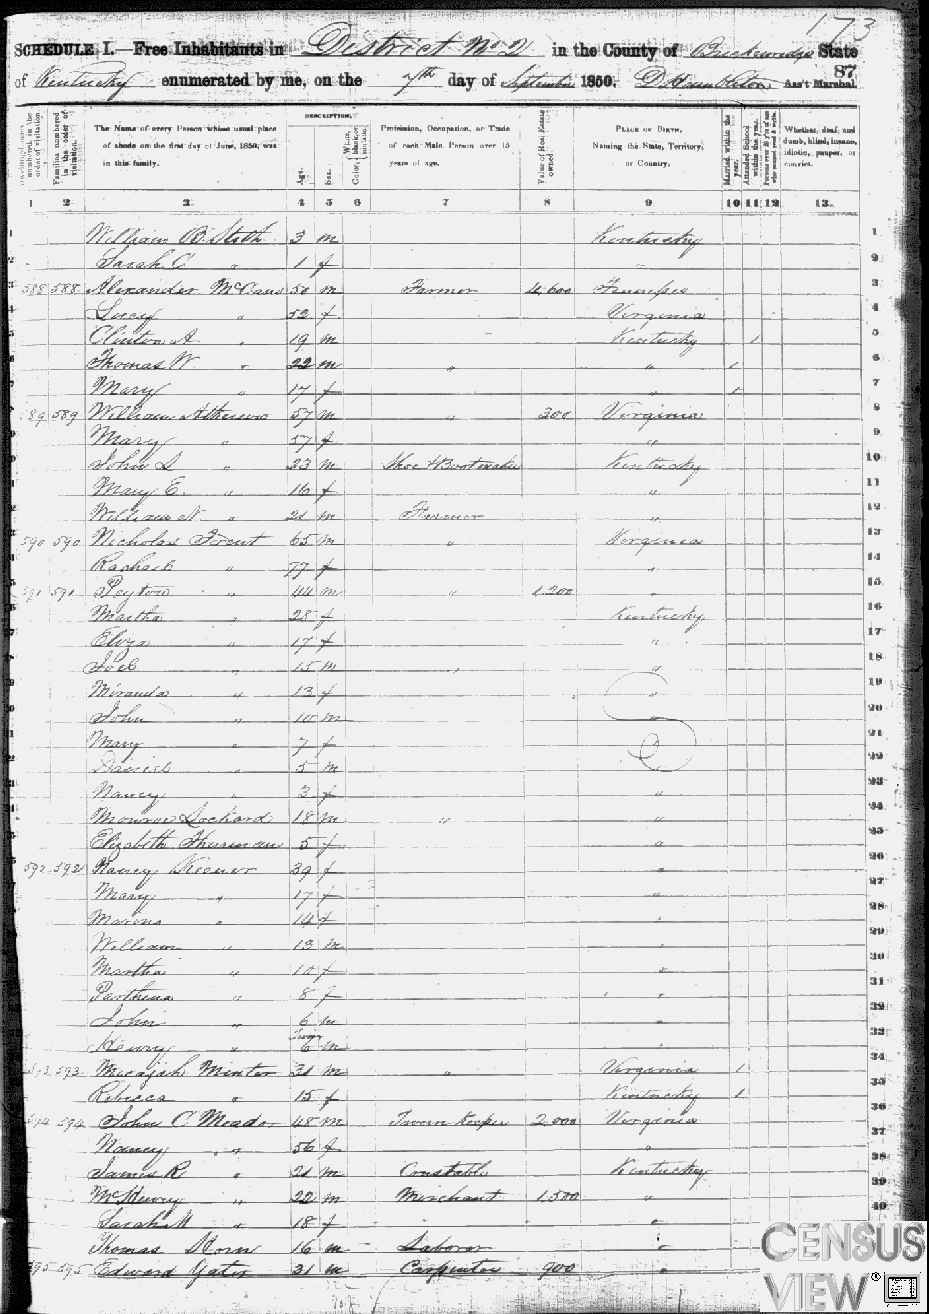 173
SCHEDULE I.—Free Inhabitants in District No 2 in the County of Breckenridge State
87
of Kentucky enumerated by me, on the 7th day of September 1850. Ass't Marshal.
DESCRIPTION.
Dwelling-houses numbered in the order of visitation.
Families numbered in the order of visitation.
The Name of every Person whose usual place of abode on the first day of June, 1850, was in this family.
Age.
Sex.
Color, White, black, or mulatto.
Profession, Occupation, or Trade of each Male Person over 15 years of age.
Value of Real Estate owned.
PLACE OF BIRTH, Naming the State, Territory, or Country.
Married within the year.
Attended School within the year.
Persons over 20 y'rs of age who cannot read & write.
Whether, deaf, and dumb, blind, insane, idiotic, pauper, or convict.
1 2 3 4 5 6 7 8 9 10 11 12 13
1 William B Stith 3 m Kentucky 1
2 Sarah C " 1 f " 2
3 588 588 Alexander 50 m Farmer 4,600 3
Lucy " 52 f Virginia 4
Clinton A. " 19 m Kentucky 1 5
Thomas W " 22 m " " 1 6
Mary " 17 f " 1 7
589 589 William 57 m " 300 Virginia 8
Mary " 57 f " 9
John S " 23 m Shoe & Bootmaker Kentucky 10
Mary E. " 16 f " 11
William N " 21 m Farmer " 12
590 590 Nicholas Frent 65 m " Virginia 13
Rachael " 77 f " 14
591 591 Peyton " 44 m " 1,200 " 15
Martha " 28 f Kentucky 16
Eliza " 17 f " 17
Joel " 15 m " " 18
Miranda " 13 f " 19
John " 10 m " 20
Mary " 7 f 21
Daniel " 5 m 22
Nancy " 3 f " 23
Monroe Lockard 18 m " " 24
Elizabeth Thurman 5 f " 25
592 592 Nancy Keener 39 f " 26
Mary " 17 f " 27
" 14 f " 28
William " 13 m " 29
Martha " 10 f " 30
Parthena " 8 f " 31
John " 6 m " 32
Henry " Twins 6 m " 33
593 593 Micajah Minter 31 m " Virginia 1 34
Rebecca " 15 f Kentucky 1 35
594 594 John C Meador 48 m Tavern Keeper 2,000 Virginia 36
Nancy " 56 f " 37
James R " 21 m Constable Kentucky 38
McHenry " 22 m Merchant 1,500 " 39
Sarah M " 18 f " 40
Thomas Storm 16 m Laborer "
595 595 Edward Yates 31 m Carpenter 900 "
CENSUS
VIEW®